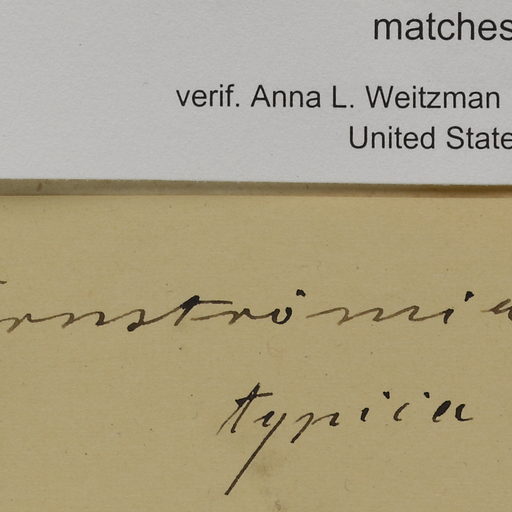 matches
verif. Anna L. Weitzman
United State
ernströmia
typica